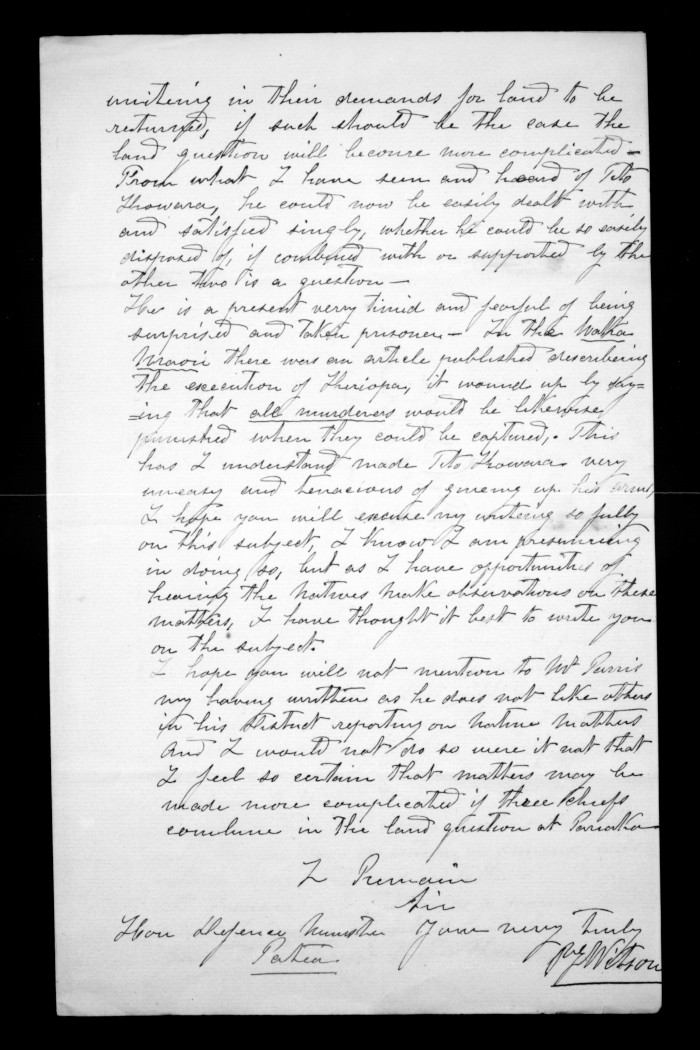 uniteing in their demands for land to be
returned, if such should be the case the
land question will become more complicated –
From what I have seen and heard of Tito
Howara, he could now be easily dealt with
and satisfied singly, whether he could be so easily
disposed of, if combined with or supported by the
other two is a question –
He is a present very timid and fearful of being
surprised and taken prisoner – In the Waka
Maori there was an article published describeing
the execution of Heriopa, it wound up by say=
=ing that all murderers would be likewise
punished when they could be captured,. This
has I understand made Tito Howara very
uneasy and tenacious of giveing up his arms,
I hope you will excuse my writeing so fully
on this subject, I know I am presumeing
in doing so, but as I have opportunities of
hearing the Natives make observations on these
matters, I have thought it best to write you
on the subject.
I hope you will not mention to Mr Parris
my having written as he does not like others
in his District reporting on Native Matters
And I would not do so were it not that
I feel so certain that matters may be
made more complicated if three Chiefs
combine in the land question at Pariaka
I Remain
Sir
Hon Defence Minister Your very truly
Patea Wilson